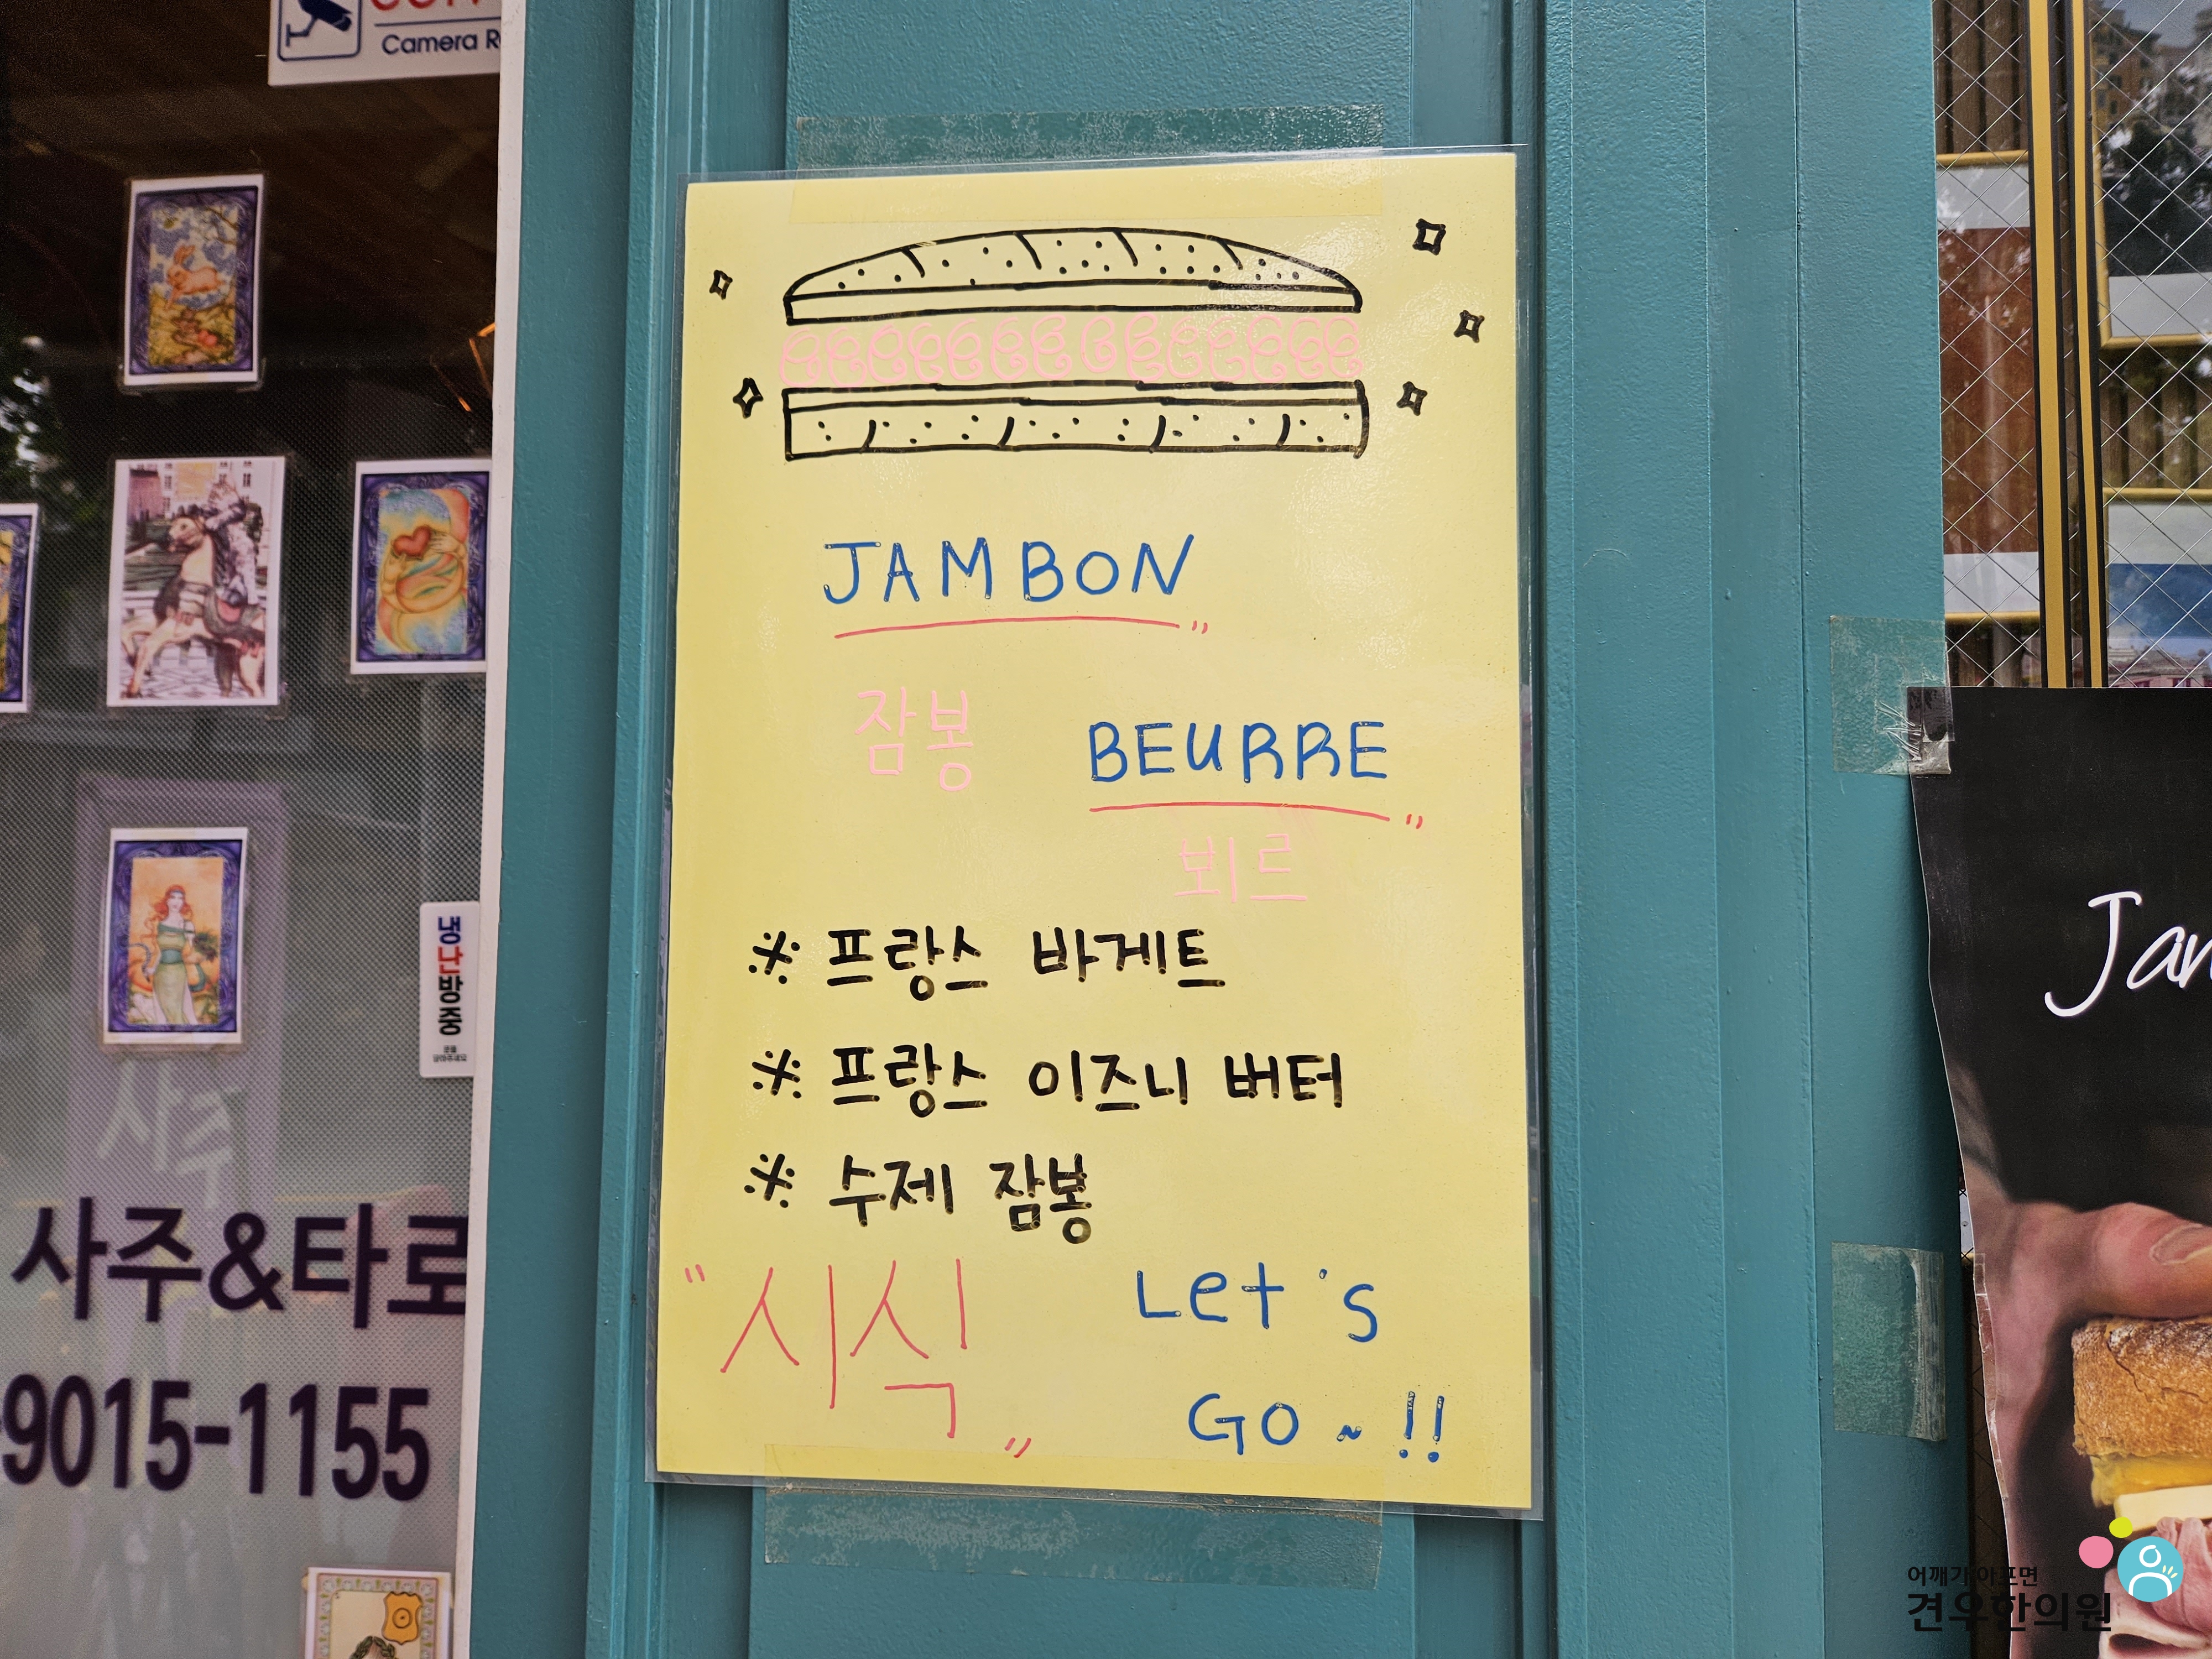 Camera
JAMBON
잠봉
BEURRE
뵈르
※ 프랑스 바게트
※ 프랑스 이즈니 버터
※ 수제 잠봉
"시식" Let's
GO~!!
냉난방중
사주
사주&타로
9015-1155
Jan
어깨가 아프면
견우한의원